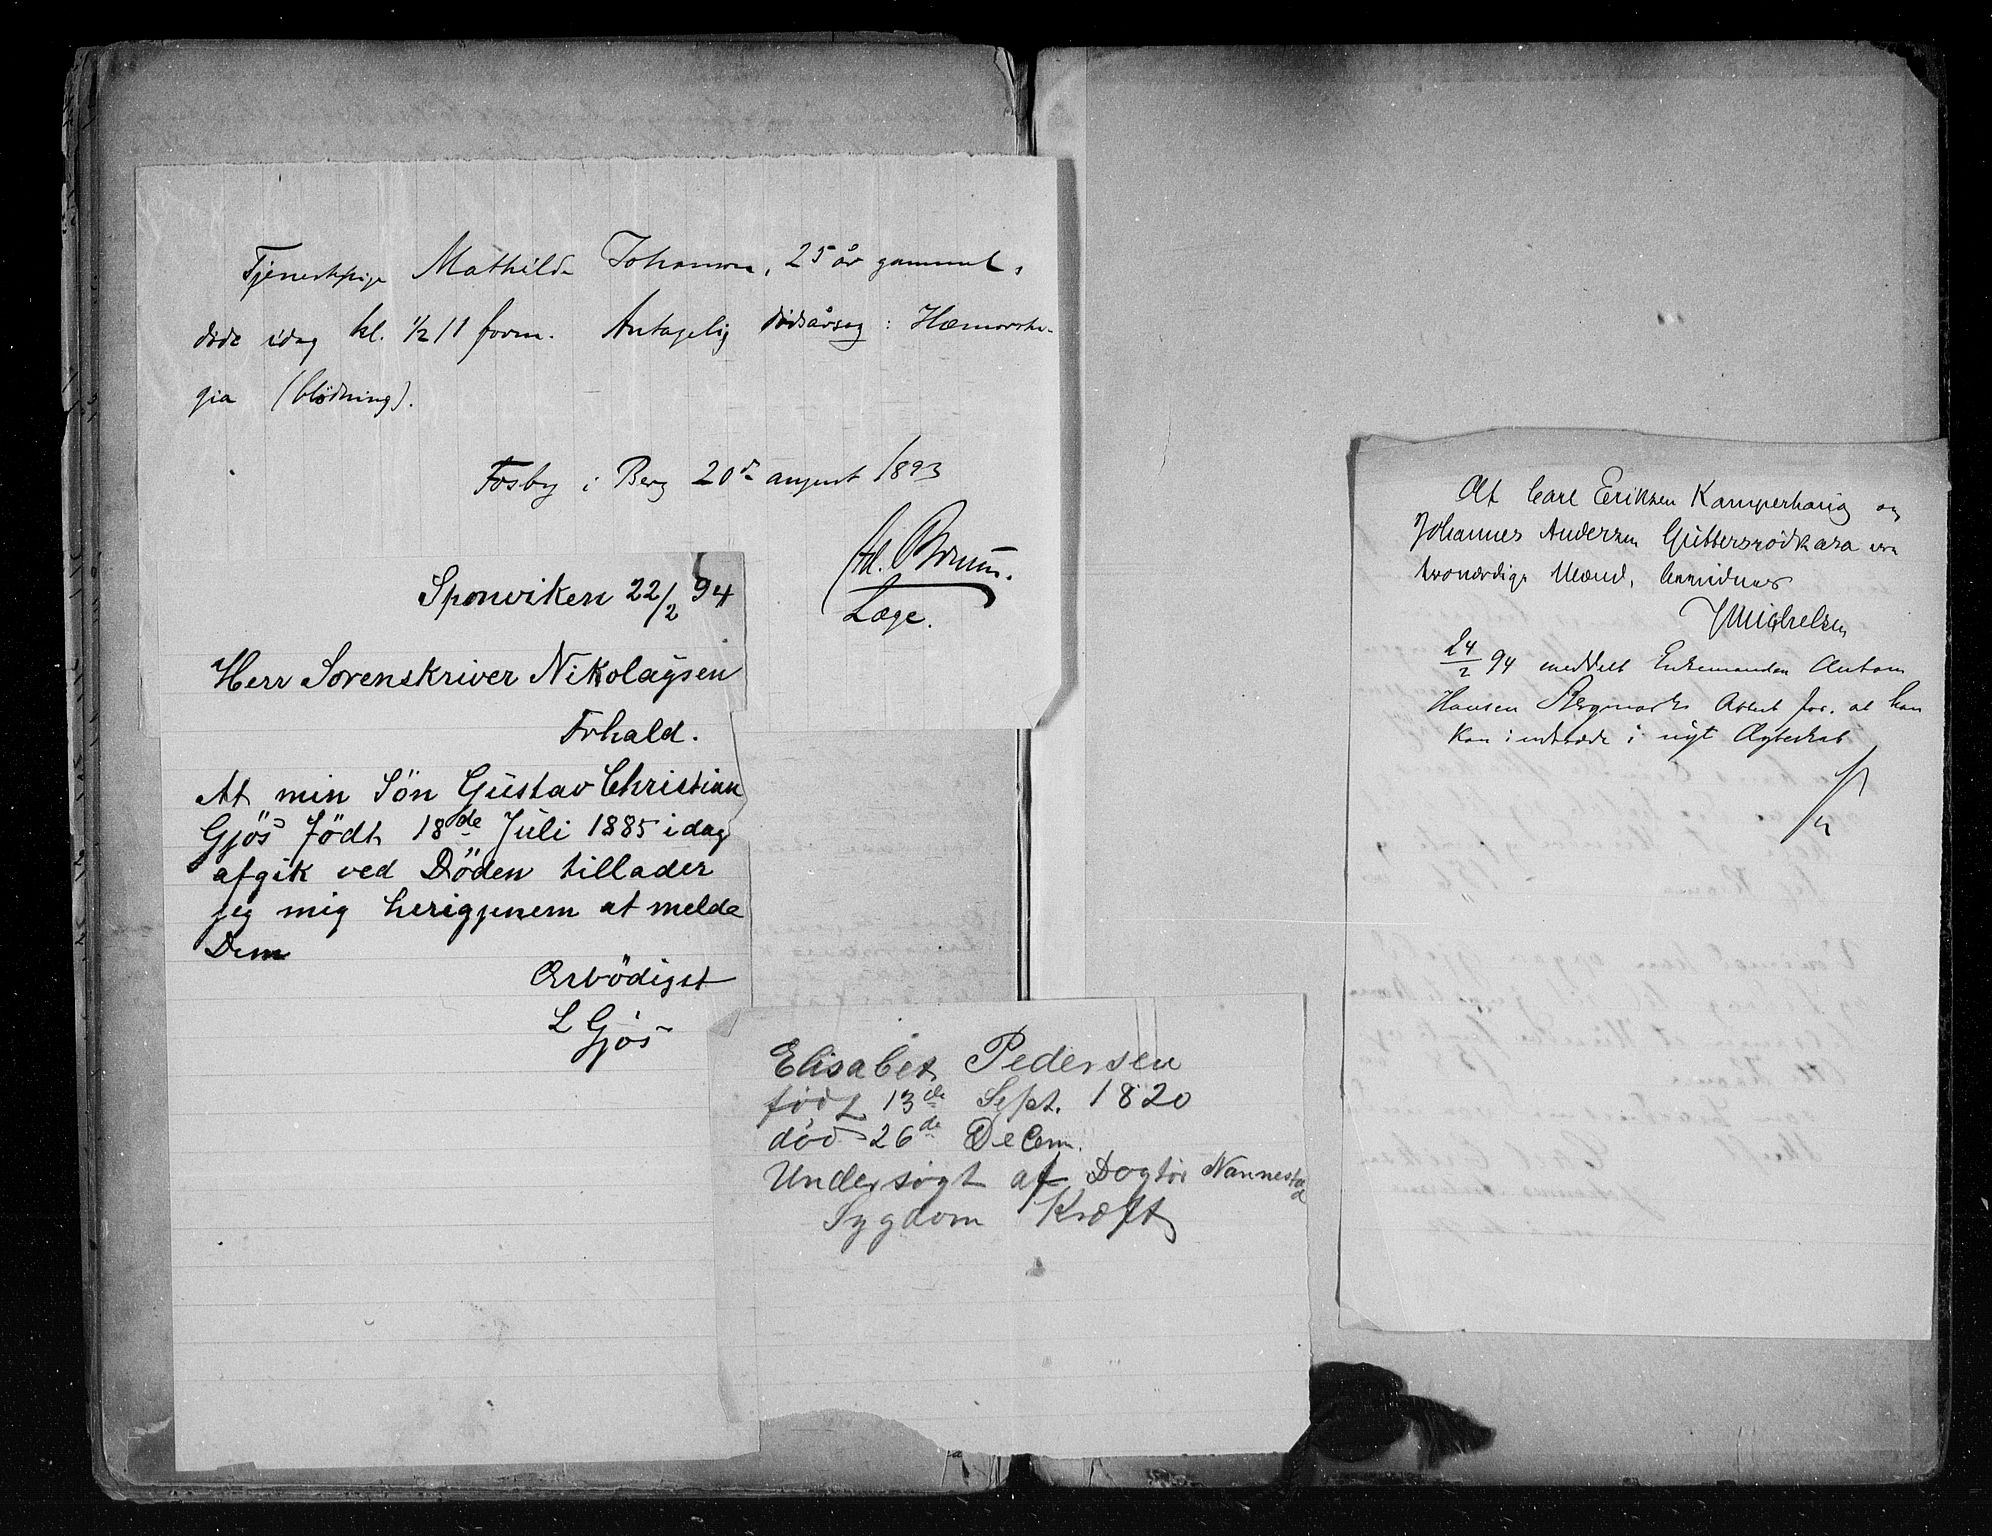 Tjenestepige Mathilde Johansen, 25 år gammel,
døde idag kl. ½11 form. Antagelig dødsårsag: Hæmorrha-
gia (blödning).
Fosby i Berg 20de august 1893
Ad. Bruun.
Læge.
Sponviken 22/2 94
Herr Sorenskriver Nikolaÿsen
Frhald.
At min Sön Gustav Christian
Gjös Födt 18de Juli 1885 idag
afgik ved Döden tillader
jeg mig herigjenem at melde
Dem
Ærbödigst
L Gjös
Elisabet Pedersen
født 13de Sept. 1820
død 26de Decem.
Undersøgt af Dogtor Nannestad
Sygdom Kræft
At Carl Eriksen Kamperhaug og
Johannes Andersen Guttersrödkasa ere
troværdige Mænd, bevidnes
J Michelsen
24/2 94 meddelt Enkemanden Anton
Hansen Bergmark Attest for, at han
kan indtræde i nyt Ægteskab